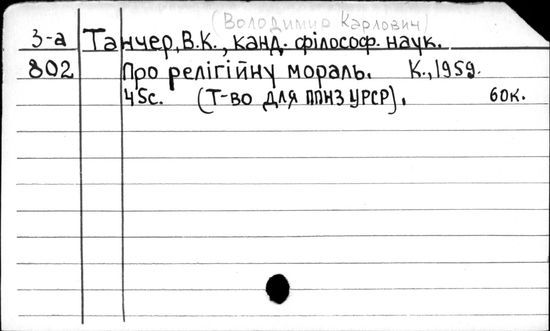 (Володимир Карлович)
З-а Танчер, В.К., канд. філософ. наук.
802 Про релігійну мораль. К., 1959.
45с. (Т-во для ппнз УРСР). 60к.